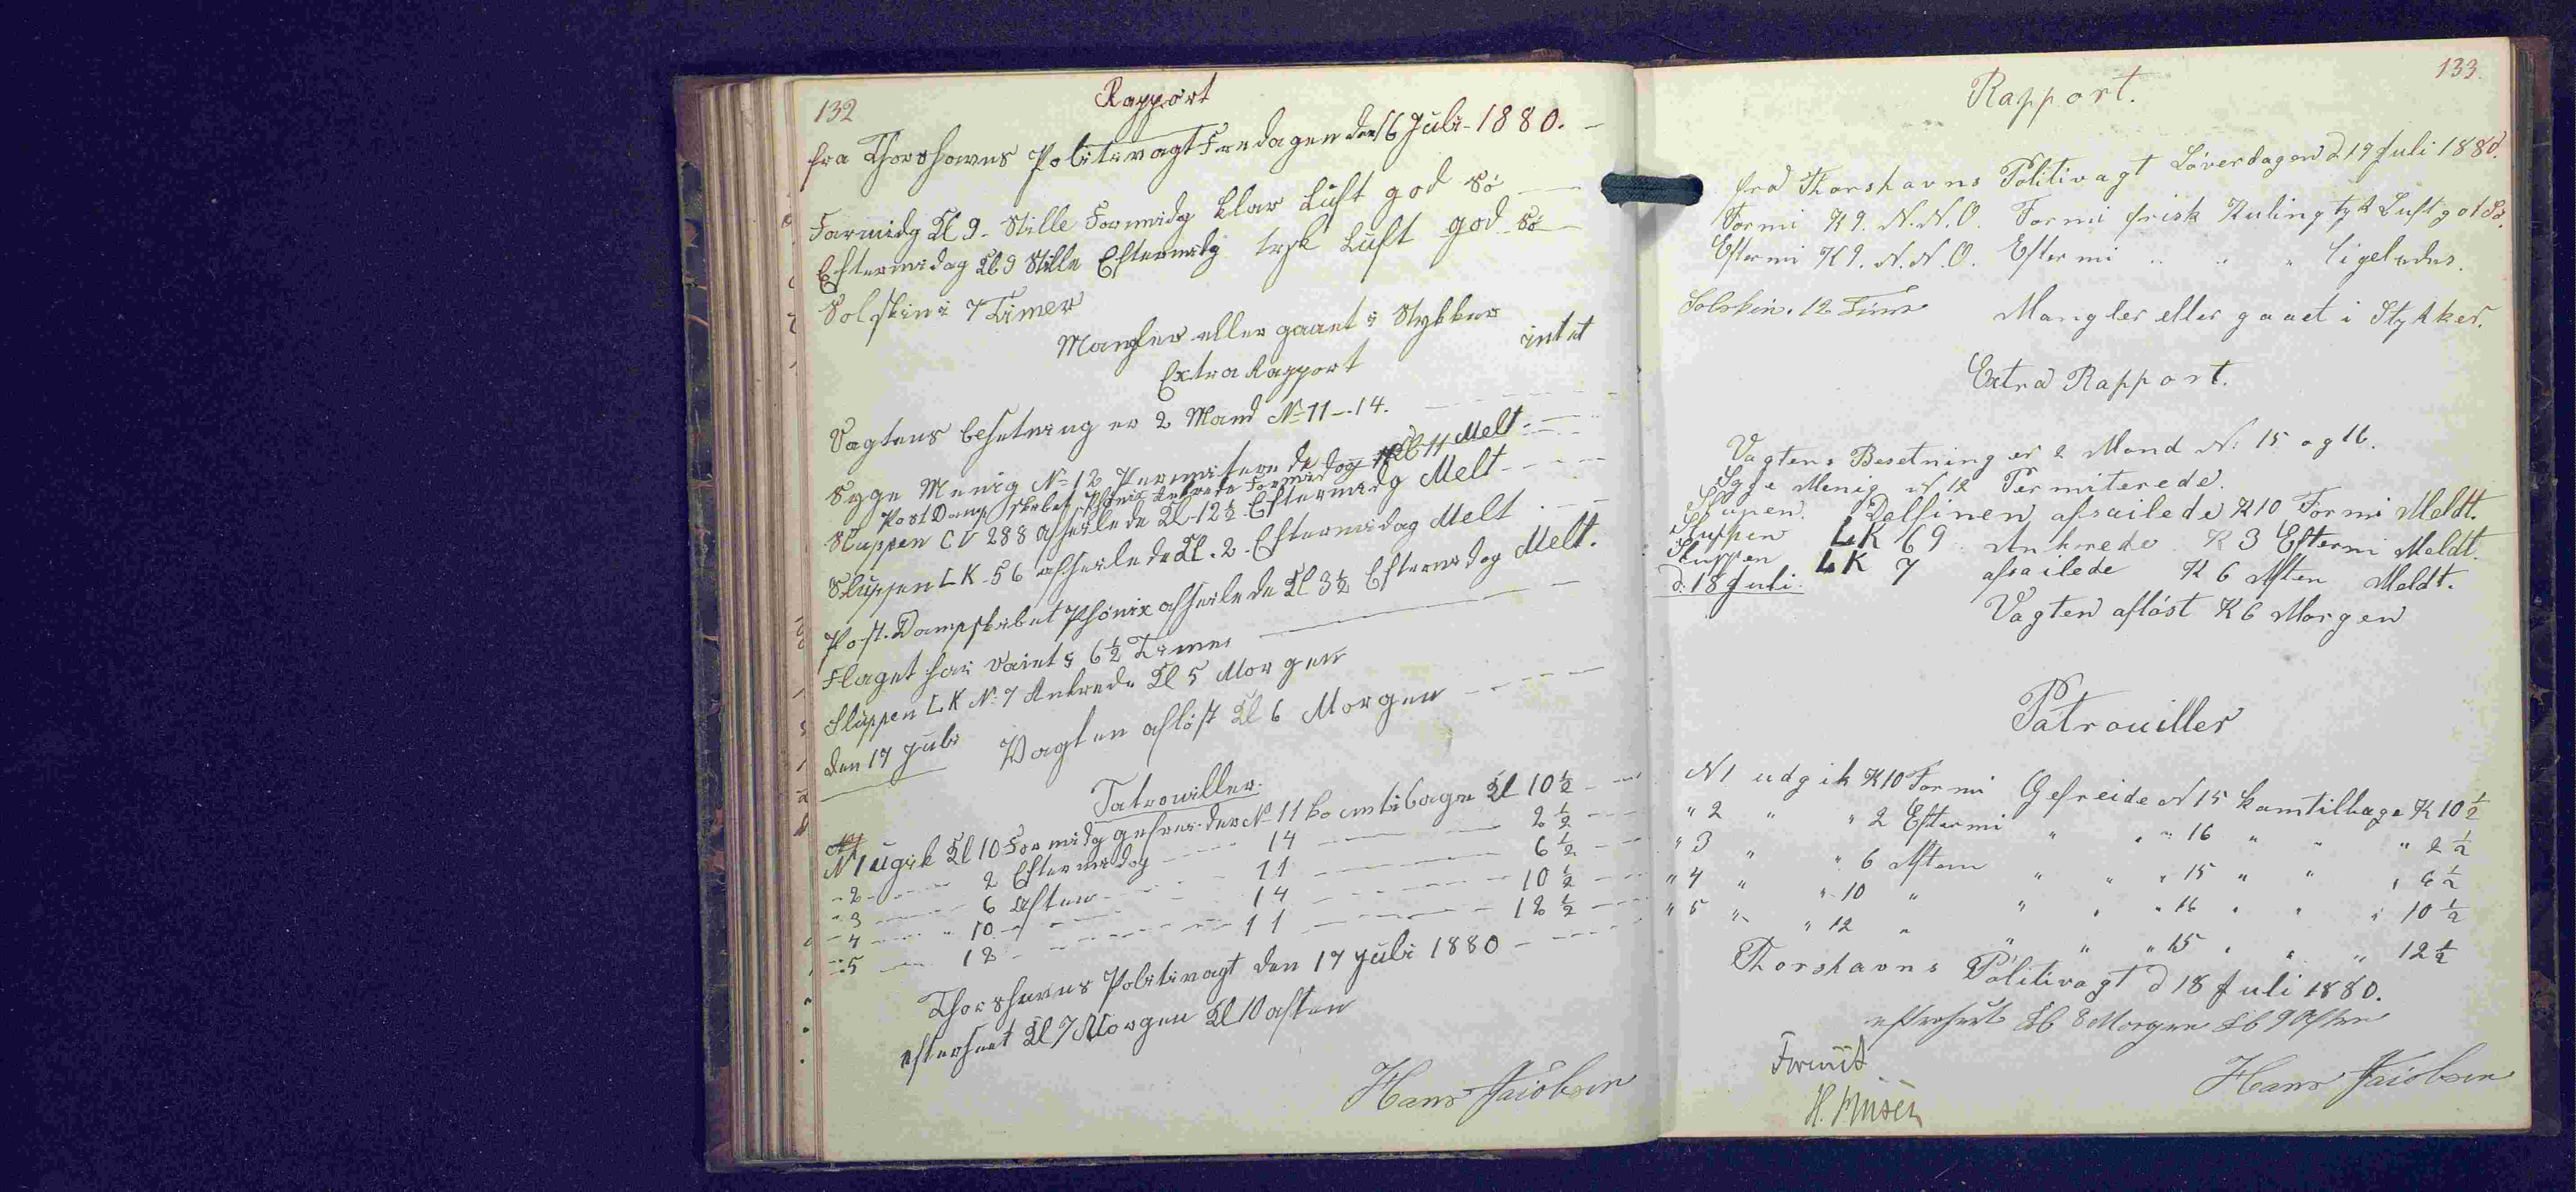 132
Rapport
fra Thorshavns Politivagt Fredagen den 16 Juli - 1880.
Formidg Kl 9 - Stille Formidg klar Luft god Sö
Eftermidag Kl 9 Stille Eftermidg tyk Luft god Sö
Solskin i 7 Timer
Mangler eller gaaet i Stykker
intet
Extra Rapport
Vagtens Besetning er 2 Mand No 11 - 14.
Syge Menig No 12 Permiterede
Post Damp Skibet Phönix Ankrede Formidag Kl 11 Melt.
Sluppen CV 288 afseilede Kl - 12 ½ Eftermidg Melt
Sluppen LK - 56 afseilede Kl. 2 - Eftermidag Melt
Post. Dampskibet Phönix afseilede Kl 3 ½ Eftermidag Melt.
Flaget har vaiet i 6 ½ Timer
Sluppen LK No 7 Ankrede Kl 5 Morgen
den 17 Juli Vagten aflöst Kl 6 Morgen
Patrouiller.
N 1 ugik Kl 10 Formidg gefreider N 11 komtilbage Kl 10 ½
- 2 - 2 Eftermidag 14 2 ½
- 3 6 Aften 11 6 ½
- 4 - 10 14 10 ½
- 5 12 11 12 ½
Thorshavns Politivagt den 17 Juli 1880
efterseet Kl 7 Morgen Kl 10 aften
Hans Jacobsen
133.
Rapport.
fra Thorshavns Politivagt Löverdagen d 17 Juli 1880.
Formi K 9. N.N.O. Formi frisk Kuling tyk Luft got Sö.
Eftermi K 9. N.N.O. Eftermi " " " Ligeledes.
Solskin i 12 Timer Mangler eller gaaet i Stykker.
Extra Rapport.
Vagtens Besetning er 2 Mand N. 15 og 16.
Syge Menig N 12 Permiterede.
Slupen. Delfinen afsailede K 10 Formi Meldt.
Sluppen LK 69 Ankrede K 3 Eftermi Meldt.
Sluppen LK 7 afsailede K 6 Aften Meldt.
d: 18 Juli. Vagten aflöst K 6 Morgen
Patrouiller
N 1 udgik K 10 Formi Gefreide N 15 komtilbage K 10 ½
" 2 " " 2 Eftermi " " " 16 " " " 2 ½
" 3 " " 6 Aftem " " " 15 " " " 6 ½
" 4 " " 10 " " " " 16 " " " 10 ½
" 5 " " 12 " " " " 15 " " " 12 ½
Thorshavns Politivagt d 18 Juli 1880.
efterseet Kl 8 Morgen Kl 9 Aften
Hans Jacobsen